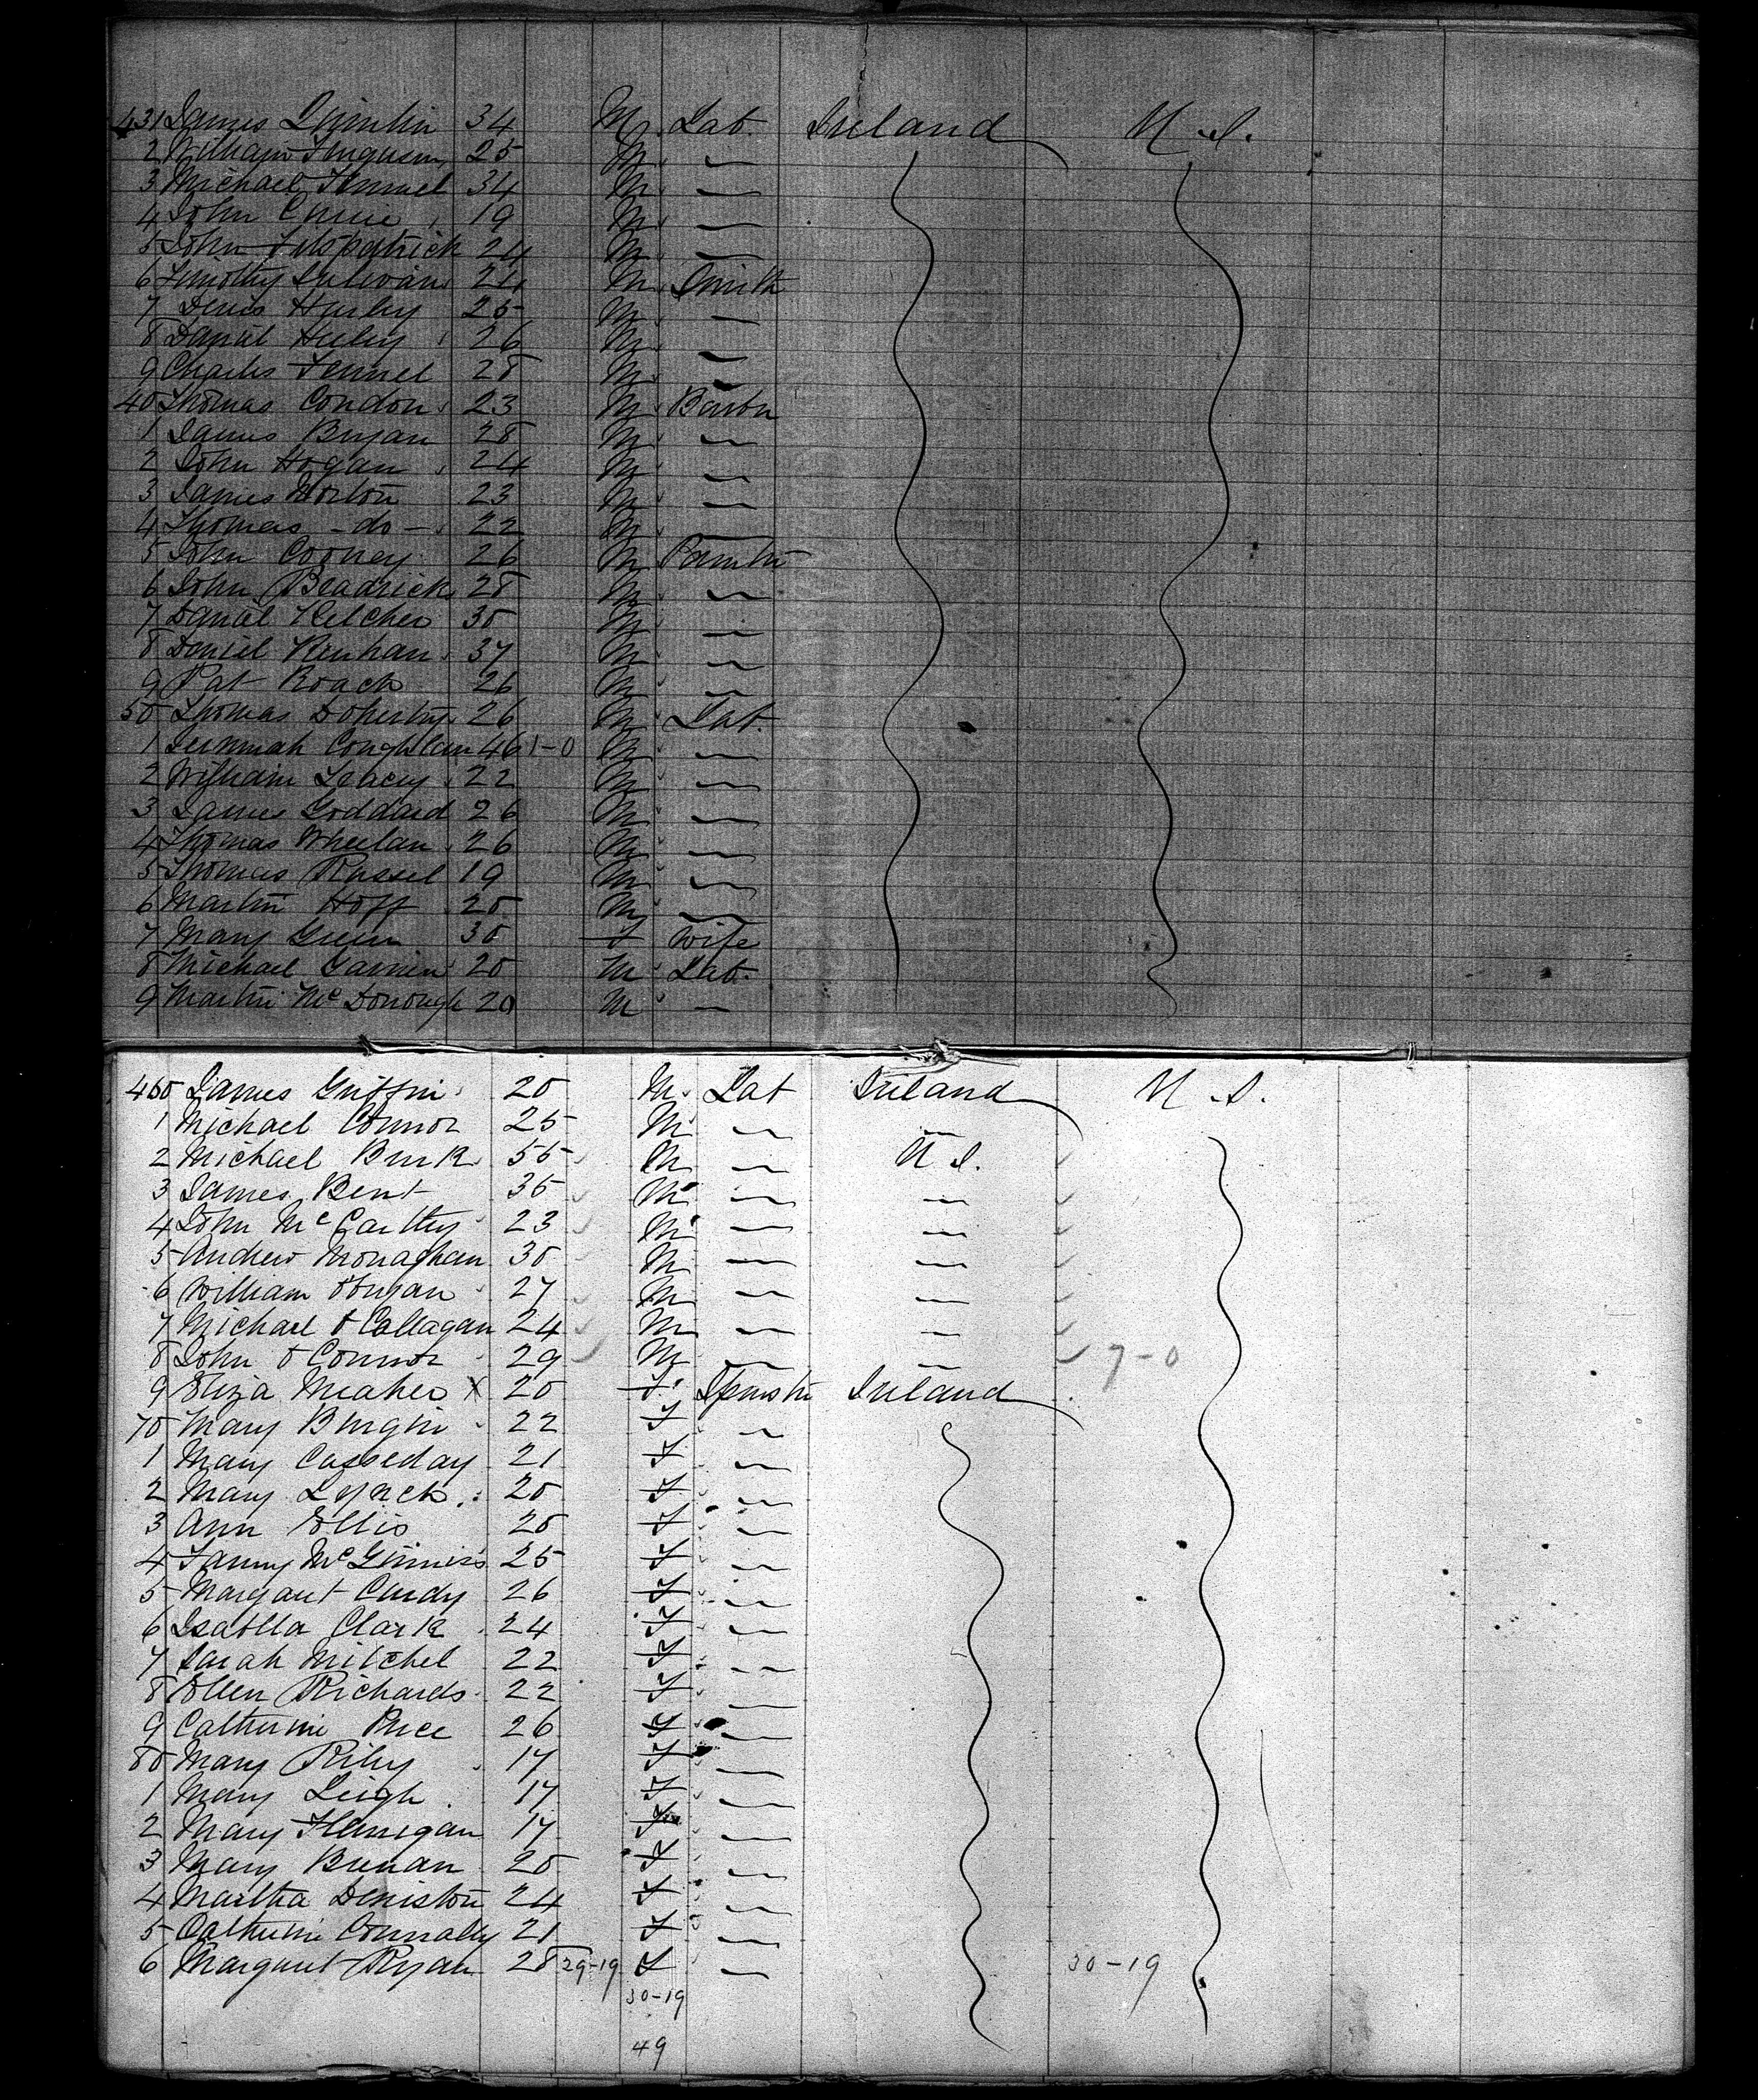 431 James 34 M Lab. Ireland U.S.
2 William Ferguson 25 M —
3 Michael 34 M —
4 John 19 M —
5 John Fitzpatrick 24 M —
6 Timothy Sulivan 24 M Smith
7 Denis Hurley 25 M —
8 Danial 26 M —
9 Charles Fennel 28 M —
40 Thomas Condon 23 M
1 James Bryan 28 M —
2 John Hogan 24 M —
3 James Norton 23 M —
4 Thomas - do - 22 M —
5 John Cooney 26 M
6 John Beadrick 28 M —
7 Danial Kelcher 30 M —
8 Daniel 37 M —
9 Pat Roach 26 M —
50 Thomas Doherty 26 M Lab.
1 Jermiah Coughlan 46 1-0 M —
2 William Leacey 22 M —
3 James Goddard 26 M —
4 Thomas Wheelan 26 M —
5 Thomas Russel 19 M —
6 Martin Hoff 20 M —
7 Mary Green 30 F Wife
8 Michael 20 M Lab.
9 Martin McDonough 20 M —
460 James Griffin 20 M Lab Ireland U.S.
1 Michael Connor 25 M —
2 Michael Burk 55 M — U.S.
3 James Bent 35 M — —
4 John McCarthy 23 M — —
5 Andrew Monaghan 30 M — —
6 William 27 M — —
7 Michael O Callagan 24 M — —
8 John O Connor 29 M — — 7-0
9 Eliza Meaher X 20 F Spinster Ireland
70 Mary Burgin 22 F —
1 Mary Casseday 21 F —
2 Mary 20 F —
3 Ann Ellis 20 F —
4 Fanny McGinniss 25 F —
5 Margaret Curdy 26 F —
6 Isabella Clark 24 F —
7 Sarah Mitchel 22 F —
8 Ellen Richards 22 F —
9 Catherine Price 26 F —
80 Mary Riley 17 F —
1 Mary Leigh 17 F —
2 Mary Flanigan 17 F —
3 Mary Brenan 20 F —
4 Martha Deniston 24 F —
5 Catherine Connally 21 F —
6 Margaret Ryan 28 29-19 F — 30-19
30-19
49